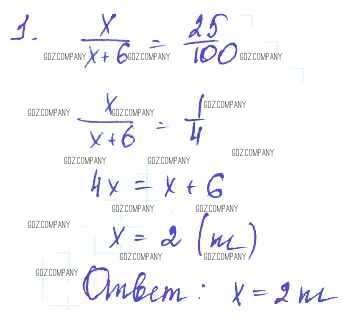 1. x/(x+6) = 25/100
GDZCOMPANY GDZCOMPANY GDZCOMPANY
GDZCOMPANY GDZCOMPANY
x/(x+6) = 1/4
GDZCOMPANY
GDZCOMPANY GDZCOMPANY
4x = x + 6
GDZCOMPANY GDZCOMPANY
GDZCOMPANY
x = 2 (т)
GDZCOMPANY GDZCOMPANY
GDZCOMPANY
Ответ: x = 2 т